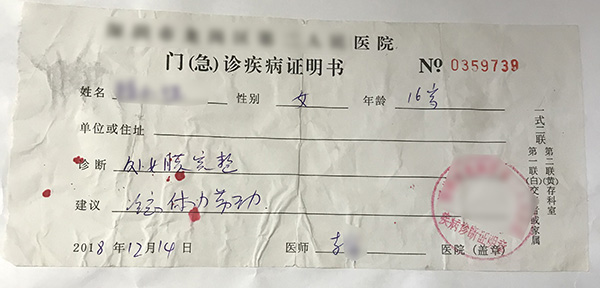 医院
门(急)诊疾病证明书 № 0359739
姓名 性别 女 年龄 16岁
单位或住址
诊断 处女膜完整
建议 体力劳动
2018年12月14日 医师 李 医院(盖章)
疾病诊断证明章
一式二联
第二联(黄)存科室
第一联(白)交 者或家属